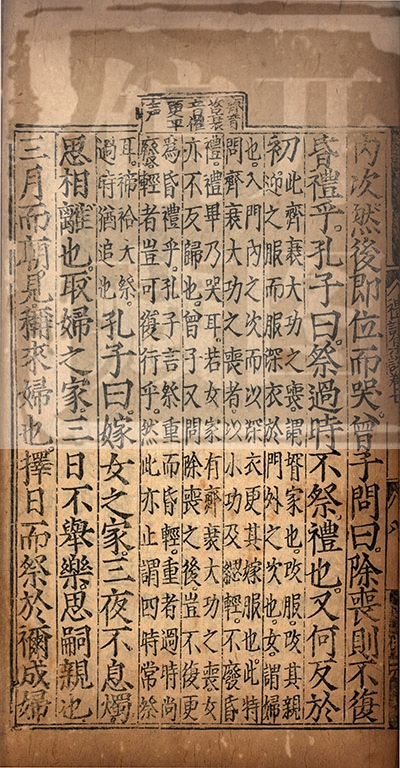 齊音
咨衰
音催
更平
声
內次。然後即位而哭。曾子問曰。除喪則不復
昏禮乎。孔子曰。祭過時不祭。禮也。又何反於
初
此齊衰大功之喪。謂壻家也。改服。改其親
迎之服而服深衣於門外之次也。女謂婦
也。入門內之次而以深衣更其嫁服也。此特
問齊衰大功之喪者。以小功及緦輕。不廢昏
禮。禮畢乃哭耳。若女家有齊衰大功之喪。女
亦不反歸也。曾子又問除喪之後豈不復更
爲昏禮乎。孔子言祭重而昏輕。重者過時尚
廢。輕者豈可復行乎。然此亦止謂四時常祭
耳。禘祫大祭。
過時猶追也。
孔子曰。嫁女之家。三夜不息燭。
思相離也。取婦之家。三日不舉樂。思嗣親也
三月而廟見。稱來婦也。擇日而祭於禰。成婦